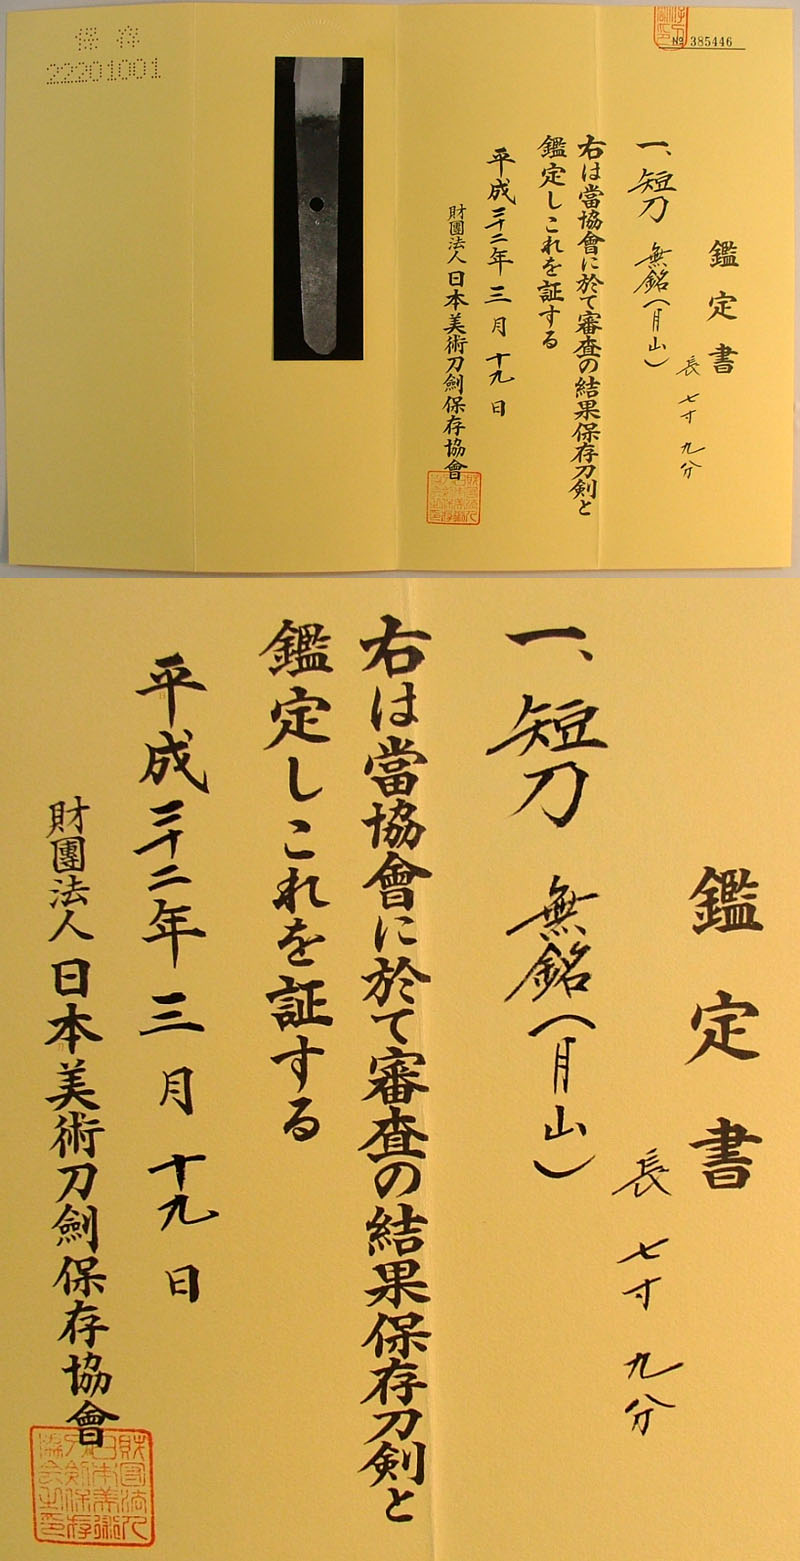 保存
22201001
№ 385446
鑑定書
一、短刀 無銘(月山)
長 七寸 九分
右は當協會に於て審査の結果保存刀剣と
鑑定しこれを証する
平成二十二年 三月 十九日
財團法人 日本美術刀劍保存協會
鑑定書
長 七寸 九分
一、短刀 無銘(月山)
右は當協會に於て審査の結果保存刀剣と
鑑定しこれを証する
平成二十二年 三月 十九日
財團法人 日本美術刀劍保存協會